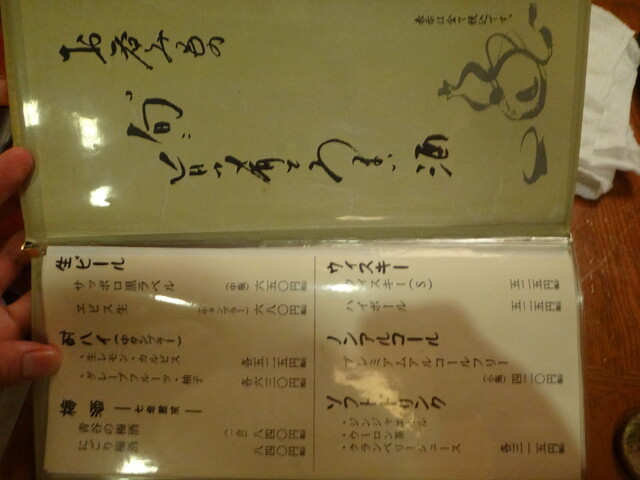 お呑みもの
旬
旨い肴とうまい酒
表示は全て税込です。
生ビール
サッポロ黒ラベル (中瓶) 六五〇円
エビス生 (中タンブラー) 六八〇円
酎ハイ (中タンブラー)
・生レモン・カルピス 各五二五円
・グレープフルーツ・柚子 各六三〇円
梅酒
青谷の梅酒 (一合) 八四〇円
にごり梅酒 八四〇円
ウィスキー
ウィスキー(S) 五二五円
ハイボール 五二五円
ノンアルコール
プレミアムアルコールフリー
(小瓶) 四二〇円
ソフトドリンク
・ジンジャエール
・ウーロン茶
・クランベリージュース 各三一五円